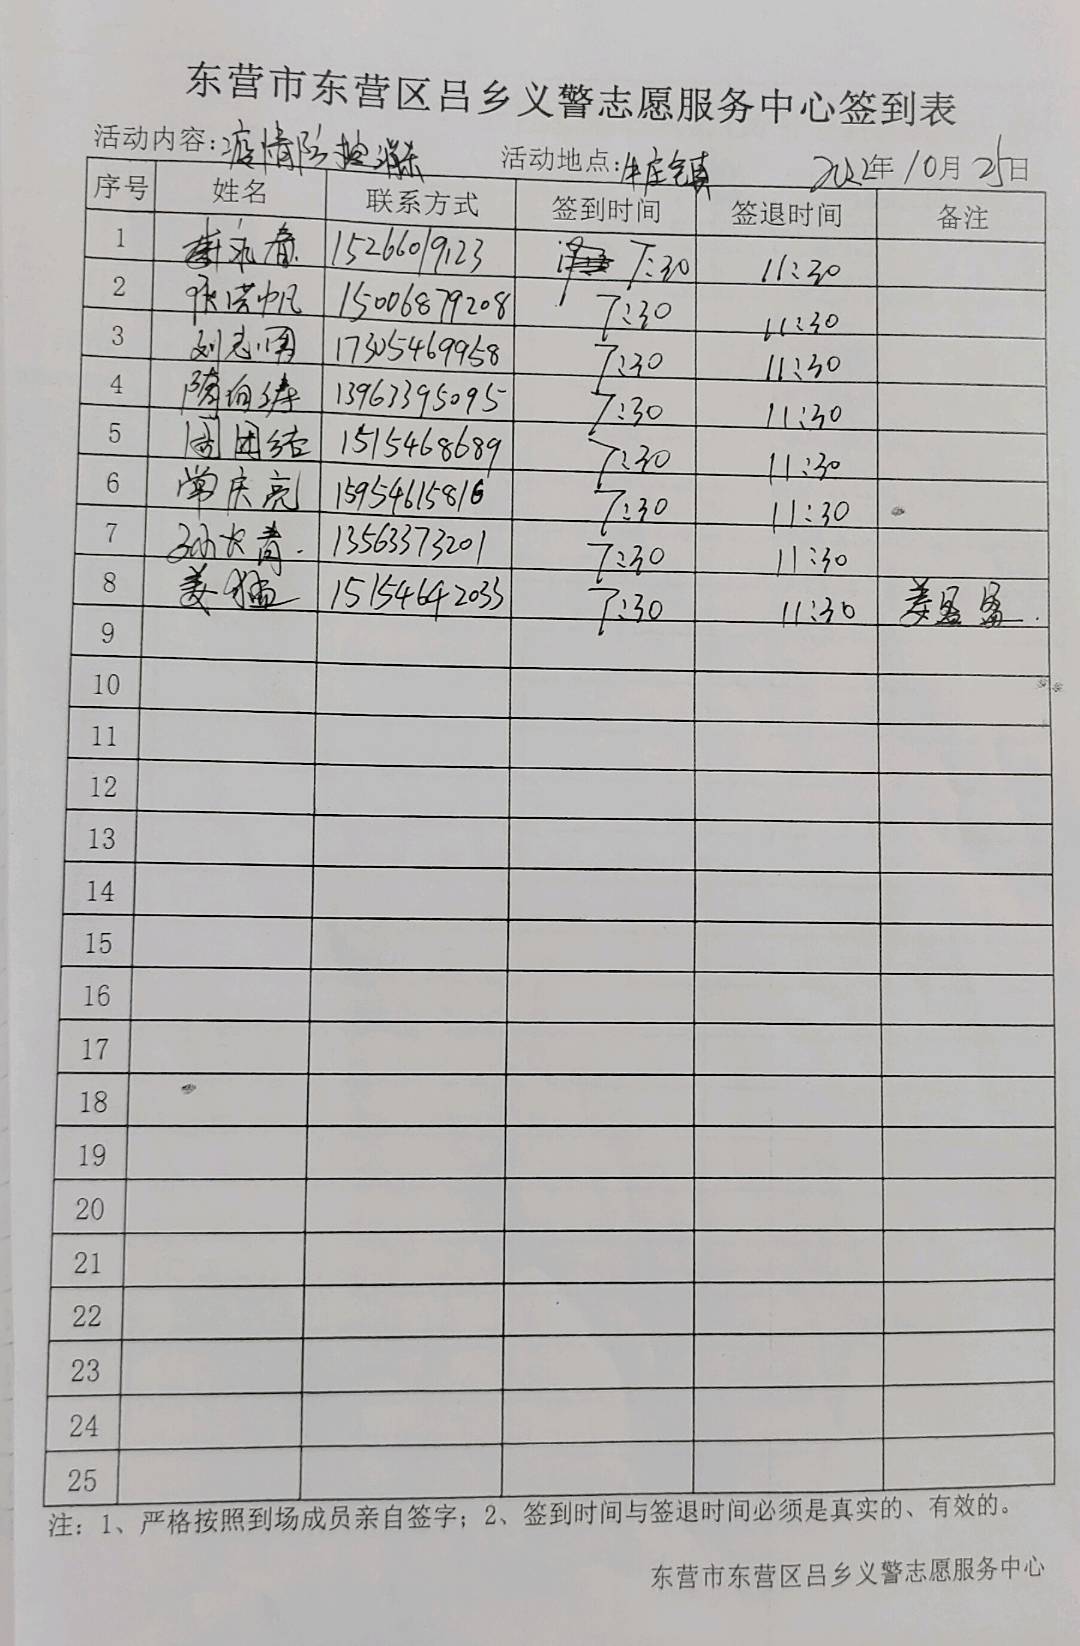 东营市东营区吕乡义警志愿服务中心签到表
活动内容:疫情防控消杀 活动地点:牛庄镇 2022年10月25日
序号 姓名 联系方式 签到时间 签退时间 备注
1 永春 15266019123 7:30 11:30
2 张洪帆 15006879208 7:30 11:30
3 刘志国 17305469958 7:30 11:30
4 隋向涛 13963395095 7:30 11:30
5 周团结 1515468689 7:30 11:30
6 常庆亮 15954615816 7:30 11:30
7 孙大青 13563373201 7:30 11:30
8 姜猛 15154642033 7:30 11:30 姜盈盈
9
10
11
12
13
14
15
16
17
18
19
20
21
22
23
24
25
注：1、严格按照到场成员亲自签字；2、签到时间与签退时间必须是真实的、有效的。
东营市东营区吕乡义警志愿服务中心